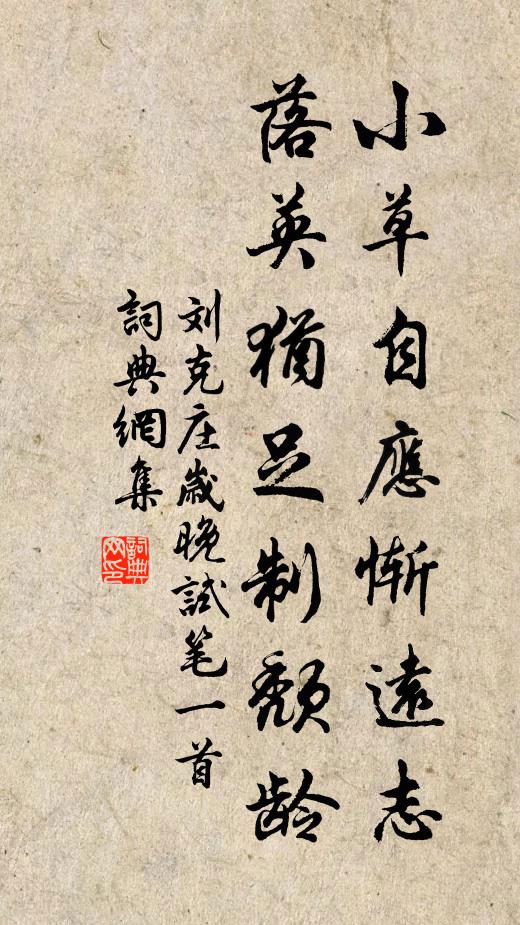 小草自應慚遠志
落英猶足制頹龄
刘克庄歲晚試笔一首
詞典網集
詞典网印